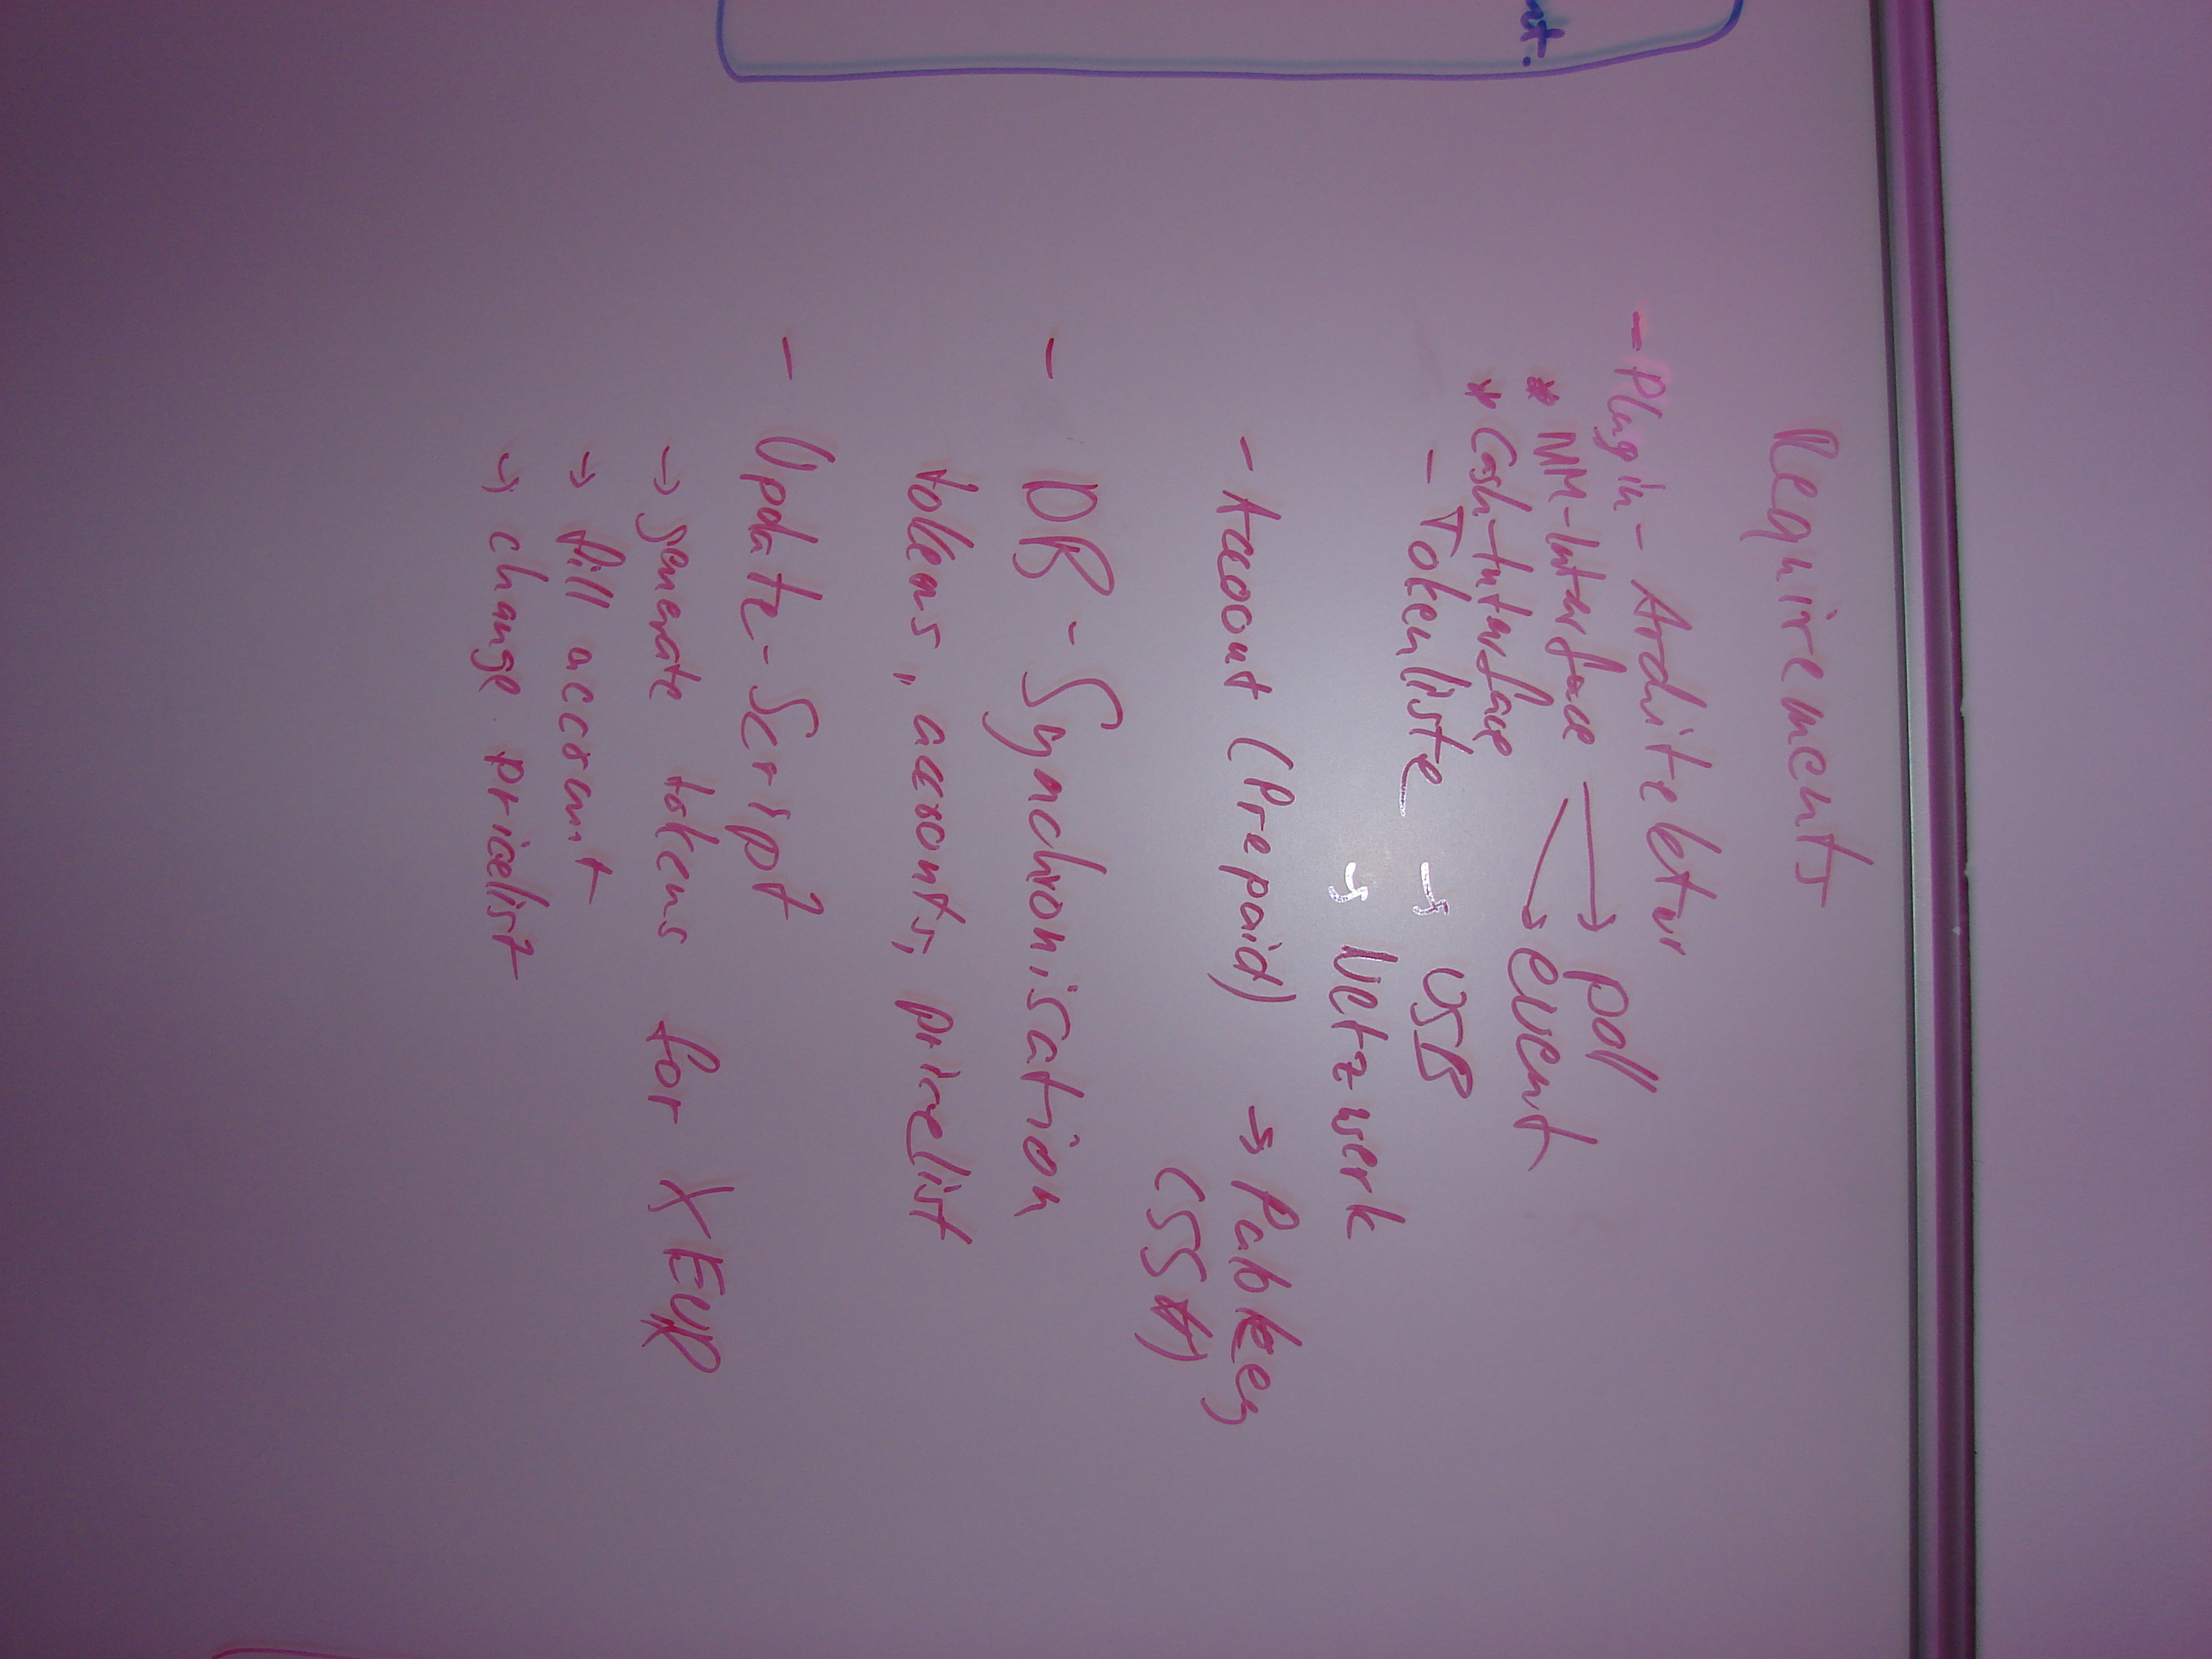 Requirements
- Plugin-Architektur
* MM-Interface → poll
→ event
* Cash-Interface
- Tokenliste → USB
→ Netzwerk
- Account (Prepaid) → Pubkey
(SSH)
- DB-Synchronisation
tokens, accounts, pricelist
- Update-Script
→ generate tokens for X EUR
→ fill account
→ change pricelist
nt.